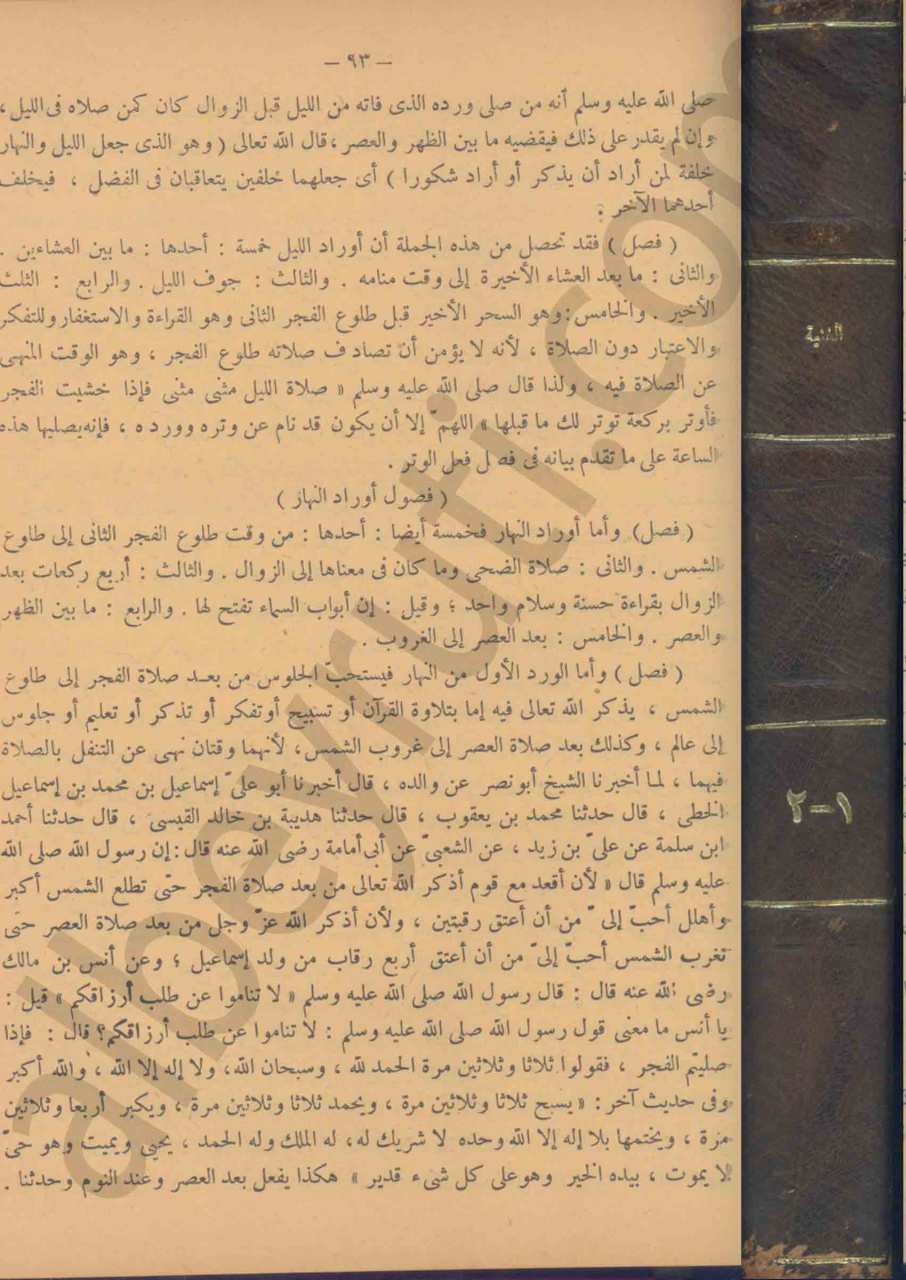 — ٩٣ —
صلى الله عليه وسلم أنه من صلى ورده الذى فاته من الليل قبل الزوال كان كمن صلاه فى الليل ،
وإن لم يقدر على ذلك فيقضيه ما بين الظهر والعصر ، قال الله تعالى ( وهو الذى جعل الليل والنهار
خلفة لمن أراد أن يذكر أو أراد شكورا ) أى جعلهما خلفين يتعاقبان فى الفضل ، فيخلف
أحدهما الآخر :
( فصل ) فقد تحصل من هذه الجملة أن أوراد الليل خمسة : أحدها : ما بين العشاءين .
والثانى : ما بعد العشاء الأخيرة إلى وقت منامه . والثالث : جوف الليل . والرابع : الثلث
الأخير . والخامس : وهو السحر الأخير قبل طلوع الفجر الثانى وهو القراءة والاستغفار وللتفكر
والاعتبار دون الصلاة ، لأنه لا يؤمن أن تصادف صلاته طلوع الفجر ، وهو الوقت المنهى
عن الصلاة فيه ، ولذا قال صلى الله عليه وسلم « صلاة الليل مثنى مثنى فإذا خشيت الفجر
فأوتر بركعة توتر لك ما قبلها » اللهمّ إلا أن يكون قد نام عن وتره وورده ، فإنه يصليها هذه
الساعة على ما تقدم بيانه فى فصل فعل الوتر .
( فصول أوراد النهار )
( فصل ) وأما أوراد النهار فخمسة أيضا : أحدها : من وقت طلوع الفجر الثانى إلى طلوع
الشمس . والثانى : صلاة الضحى وما كان فى معناها إلى الزوال . والثالث : أربع ركعات بعد
الزوال بقراءة حسنة وسلام واحد ؛ وقيل : إن أبواب السماء تفتح لها . والرابع : ما بين الظهر
والعصر . والخامس : بعد العصر إلى الغروب .
( فصل ) وأما الورد الأول من النهار فيستحبّ الجلوس من بعد صلاة الفجر إلى طلوع
الشمس ، يذكر الله تعالى فيه إما بتلاوة القرآن أو تسبيح أو تفكر أو تذكر أو تعليم أو جلوس
إلى عالم ، وكذلك بعد صلاة العصر إلى غروب الشمس ، لأنهما وقتان نهى عن التنفل بالصلاة
فيهما ، لما أخبرنا الشيخ أبو نصر عن والده ، قال أخبرنا أبو علىّ إسماعيل بن محمد بن إسماعيل
الخطى ، قال حدثنا محمد بن يعقوب ، قال حدثنا هدبة بن خالد القيسى ، قال حدثنا أحمد
ابن سلمة عن علىّ بن زيد ، عن الشعبىّ عن أبى أمامة رضى الله عنه قال : إن رسول الله صلى الله
عليه وسلم قال « لأن أقعد مع قوم أذكر الله تعالى من بعد صلاة الفجر حتى تطلع الشمس أكبر
وأهلل أحبّ إلىّ من أن أعتق رقبتين ، ولأن أذكر الله عزّ وجل من بعد صلاة العصر حتى
تغرب الشمس أحبّ إلىّ من أن أعتق أربع رقاب من ولد إسماعيل ؛ وعن أنس بن مالك
رضى الله عنه قال : قال رسول الله صلى الله عليه وسلم « لا تناموا عن طلب أرزاقكم » قيل :
يا أنس ما معنى قول رسول الله صلى الله عليه وسلم : لا تناموا عن طلب أرزاقكم؟ قال : فإذا
صليتم الفجر ، فقولوا ثلاثا وثلاثين مرة الحمد لله ، وسبحان الله ، ولا إله إلا الله ، والله أكبر
وفى حديث آخر : « يسبح ثلاثا وثلاثين مرة ، ويحمد ثلاثا وثلاثين مرة ، ويكبر أربعا وثلاثين
مرة ، ويختمها بلا إله إلا الله وحده لا شريك له ، له الملك وله الحمد ، يحيى ويميت وهو حىّ
لا يموت ، بيده الخير وهو على كل شىء قدير » هكذا يفعل بعد العصر وعند النوم وحدثنا .
الغنية
١-٢
albeyruti.com